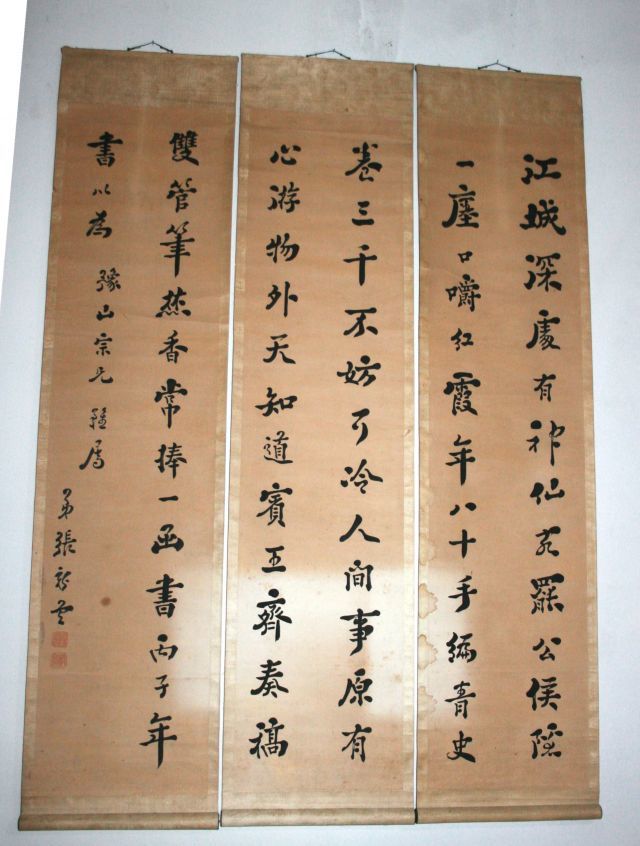 江城深處有神仙罷公侯隱
一廛口嚼紅霞年八十手編青史
卷三千不妨了冷人間事原有
心游物外天知道賓王齊奏稿
雙管筆香常捧一函書丙子年
書以為 豫山宗兄 屬
弟張